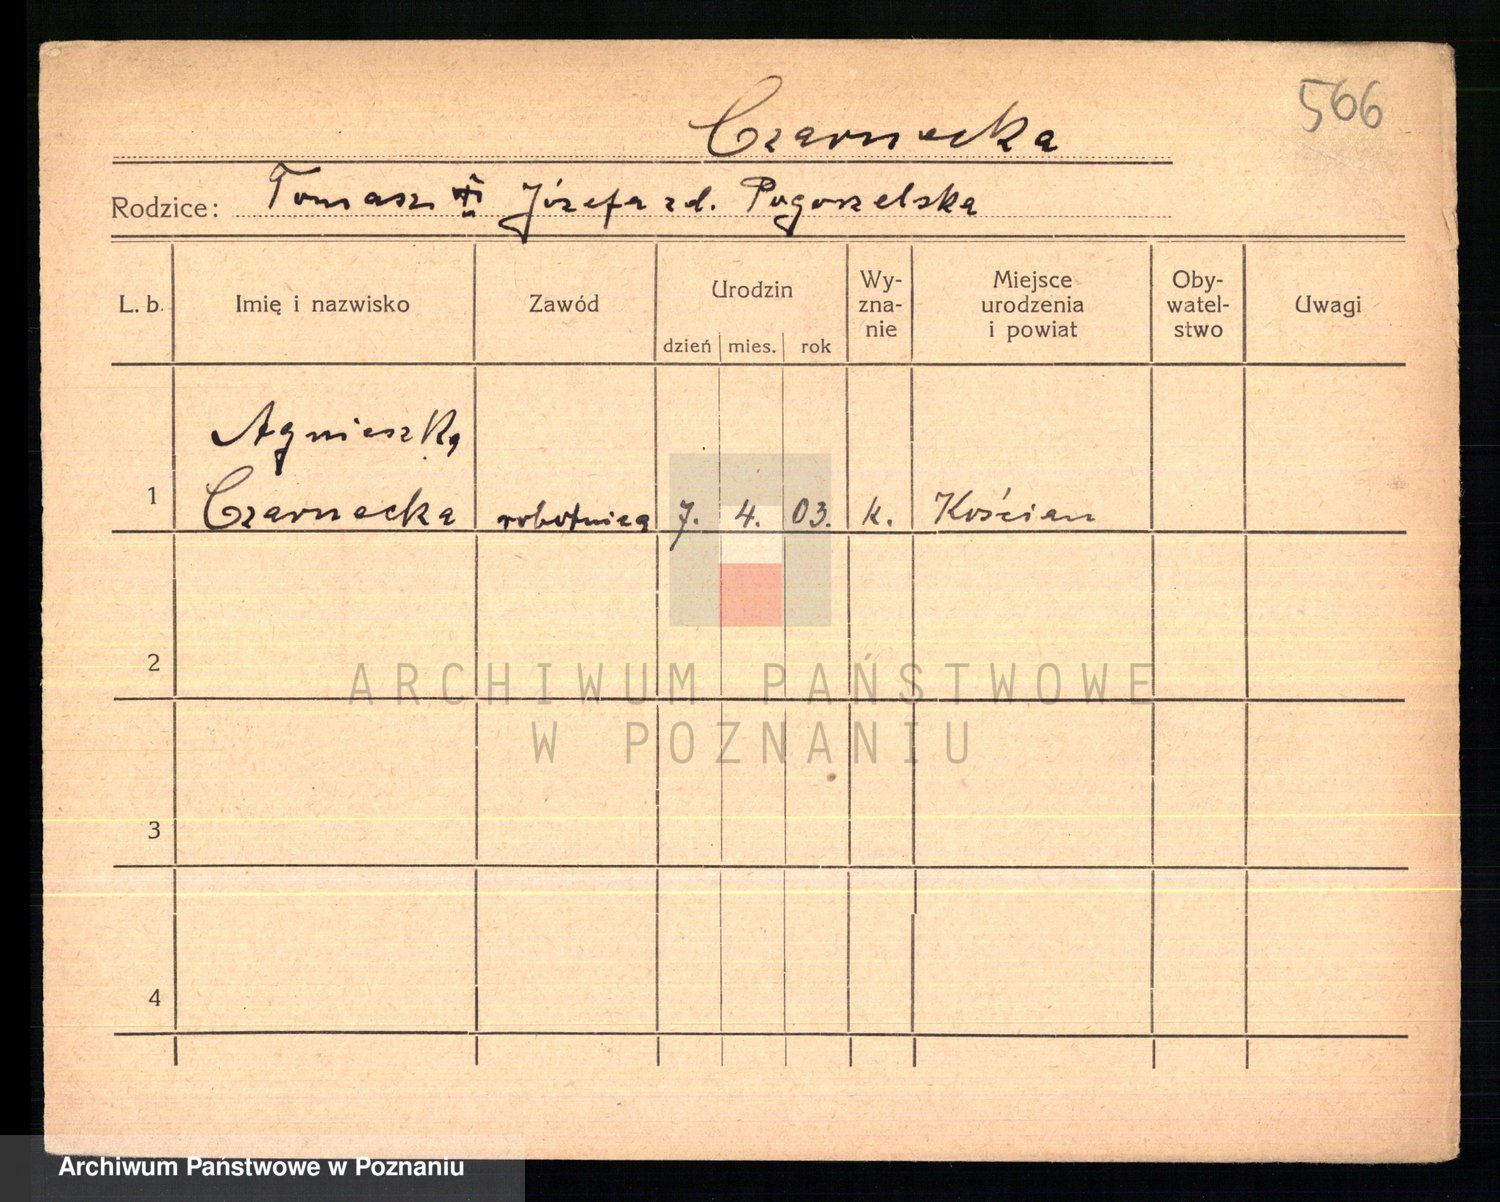 566
Czarnecka
Rodzice: Tomasz i Józefa zd. Pogorzelska
L. b. Imię i nazwisko Zawód Urodzin dzień mies. rok Wy-zna-nie Miejsce urodzenia i powiat Oby-watel-stwo Uwagi
Agnieszka
1 Czarnecka robotnica 7. 4. 03. k. Kościan
2
ARCHIWUM PAŃSTWOWE
W POZNANIU
3
4
Archiwum Państwowe w Poznaniu